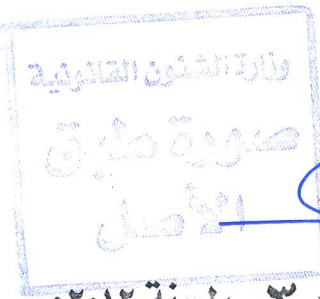 وزارة الشئون القانونية
صورة طبق
الأصل
لسنة ٢٠١٢